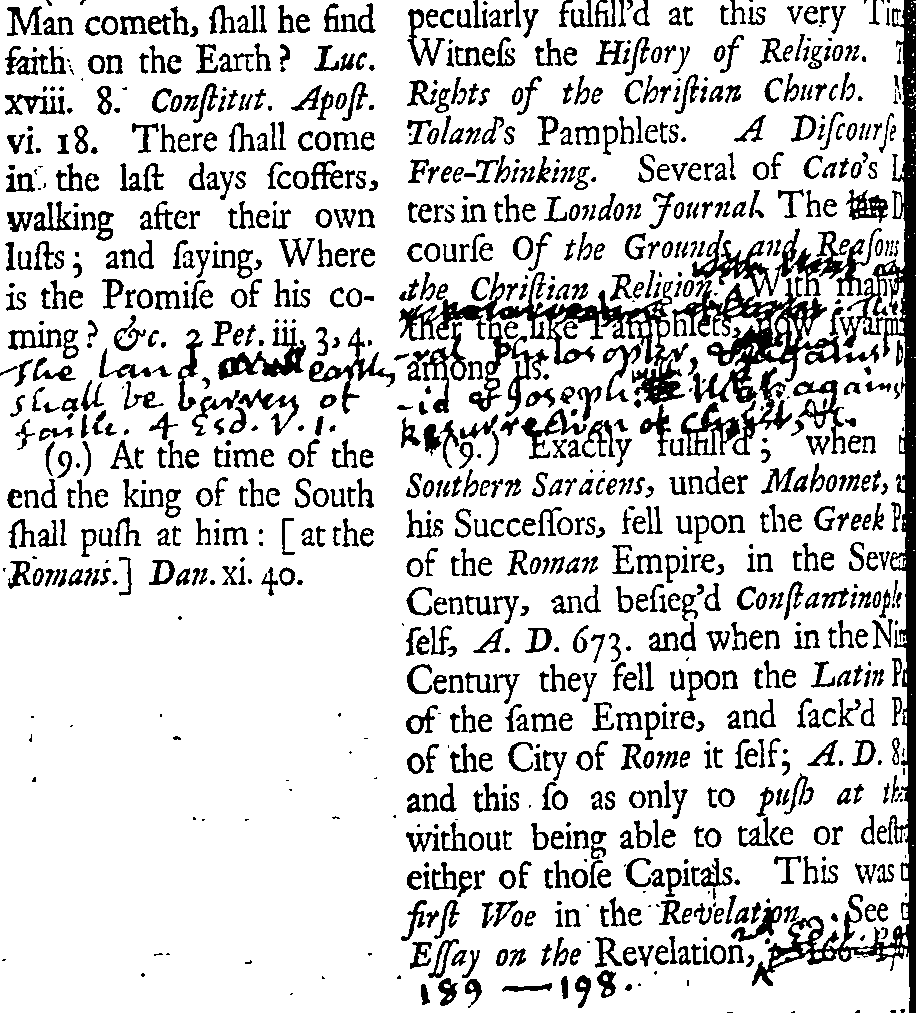 Man cometh, ſhall he find
faith on the Earth? Luc.
xviii. 8. Conſtitut. Apoſt.
vi. 18. There ſhall come
in the laſt days ſcoffers,
walking after their own
luſts; and ſaying, Where
is the Promiſe of his co-
ming? &c. 2 Pet. iii. 3, 4.
The land, earth,
shall be barren of
faith. 4 Esd. V. 1.
(9.) At the time of the
end the king of the South
ſhall puſh at him: [at the
Romans.] Dan. xi. 40.
peculiarly fulfill'd at this very
Witneſs the Hiſtory of Religion.
Rights of the Chriſtian Church.
Toland's Pamphlets. A Diſcourſe
Free-Thinking. Several of Cato's
ters in the London Journal. The
courſe Of the Grounds and Reaſons
the Chriſtian Religion. With many
ther the like Pamphlets, now ſwarm
-ral Philosopher,
among us.
-id & Joseph: against
Resurrection of Christ, &c.
(9.) Exactly fulfill'd; when
Southern Saracens, under Mahomet,
his Succeſſors, fell upon the Greek
of the Roman Empire, in the
Century, and beſieg'd Conſtantinople
ſelf, A. D. 673. and when in the
Century they fell upon the Latin
of the ſame Empire, and ſack'd
of the City of Rome it ſelf; A. D.
and this ſo as only to puſh at
without being able to take or
either of thoſe Capitals. This was
firſt Woe in the Revelation. See
Eſſay on the Revelation, 2d Ed.
189 — 198.